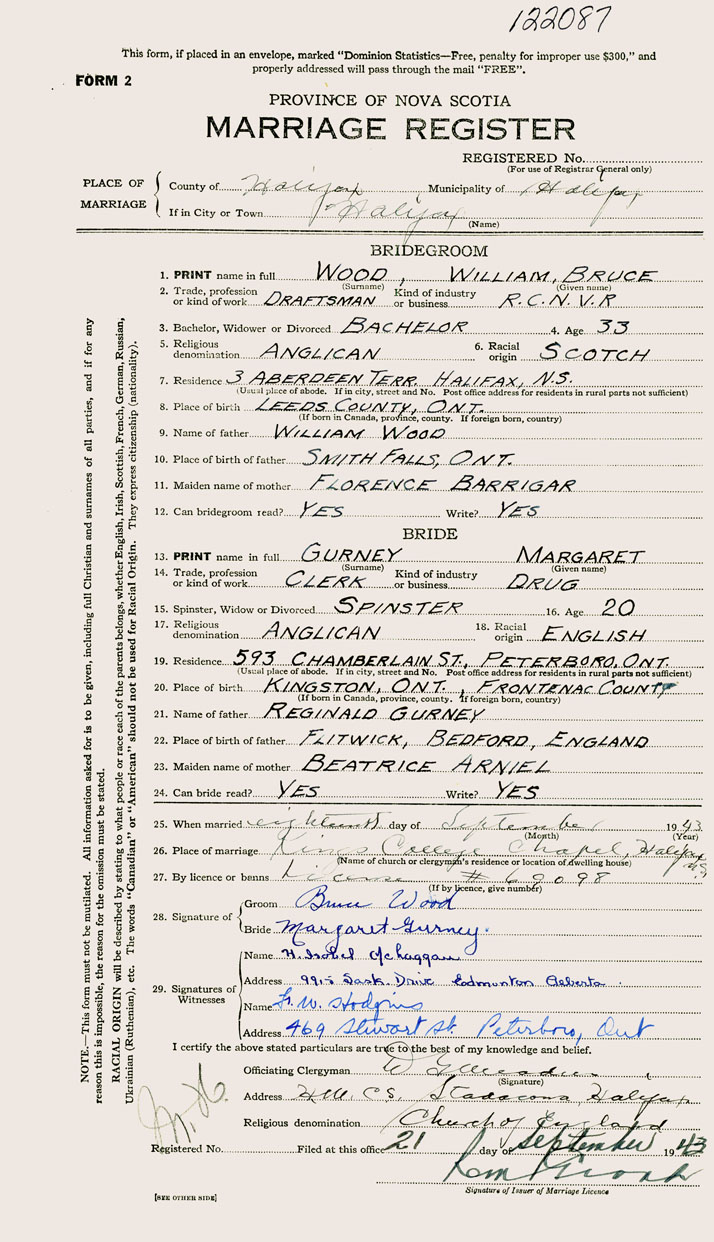 122087
This form, if placed in an envelope, marked "Dominion Statistics—Free, penalty for improper use $300," and
properly addressed will pass through the mail "FREE".
FORM 2
PROVINCE OF NOVA SCOTIA
MARRIAGE REGISTER
REGISTERED No.
(For use of Registrar General only)
PLACE OF MARRIAGE
County of Halifax Municipality of Halifax
If in City or Town Halifax
(Name)
BRIDEGROOM
1. PRINT name in full WOOD, WILLIAM, BRUCE
(Surname) (Given name)
2. Trade, profession or kind of work DRAFTSMAN Kind of industry or business R.C.N.V.R
3. Bachelor, Widower or Divorced BACHELOR 4. Age 33
5. Religious denomination ANGLICAN 6. Racial origin SCOTCH
7. Residence 3 ABERDEEN TERR. HALIFAX, N.S.
(Usual place of abode. If in city, street and No. Post office address for residents in rural parts not sufficient)
8. Place of birth LEEDS COUNTY, ONT.
(If born in Canada, province, county. If foreign born, country)
9. Name of father WILLIAM WOOD
10. Place of birth of father SMITH FALLS, ONT.
11. Maiden name of mother FLORENCE BARRIGAR
12. Can bridegroom read? YES Write? YES
BRIDE
13. PRINT name in full GURNEY MARGARET
(Surname) (Given name)
14. Trade, profession or kind of work CLERK Kind of industry or business DRUG
15. Spinster, Widow or Divorced SPINSTER 16. Age 20
17. Religious denomination ANGLICAN 18. Racial origin ENGLISH
19. Residence 593 CHAMBERLAIN ST., PETERBORO, ONT.
(Usual place of abode. If in city, street and No. Post office address for residents in rural parts not sufficient)
20. Place of birth KINGSTON, ONT., FRONTENAC COUNTY
(If born in Canada, province, county. If foreign born, country)
21. Name of father REGINALD GURNEY
22. Place of birth of father FLITWICK, BEDFORD, ENGLAND
23. Maiden name of mother BEATRICE ARNIEL
24. Can bride read? YES Write? YES
25. When married eighteenth day of September 1943
(Month) (Year)
26. Place of marriage Kings College Chapel, Halifax N.S.
(Name of church or clergymen's residence or location of dwelling house)
27. By licence or banns License # 69098
(If by licence, give number)
28. Signature of
Groom Bruce Wood
Bride Margaret Gurney.
29. Signatures of Witnesses
Name H. Isobel
Address 9915 Sask. Drive Edmonton Alberta.
Name F. W. Hodgins
Address 469 Stewart St. Peterboro, Ont
I certify the above stated particulars are true to the best of my knowledge and belief.
Officiating Clergyman
(Signature)
Address H.M.C.S. Stadacona, Halifax
Religious denomination Church of England
Registered No. Filed at this office 21 day of September 1943
Signature of Issuer of Marriage Licence
[SEE OTHER SIDE]
NOTE.—This form must not be mutilated. All information asked for is to be given, including full Christian and surnames of all parties, and if for any
reason this is impossible, the reason for the omission must be stated.
RACIAL ORIGIN will be described by stating to what people or race each of the parents belongs, whether English, Irish, Scottish, French, German, Russian,
Ukrainian (Ruthenian), etc. The words "Canadian" or "American" should not be used for Racial Origin. They express citizenship (nationality).